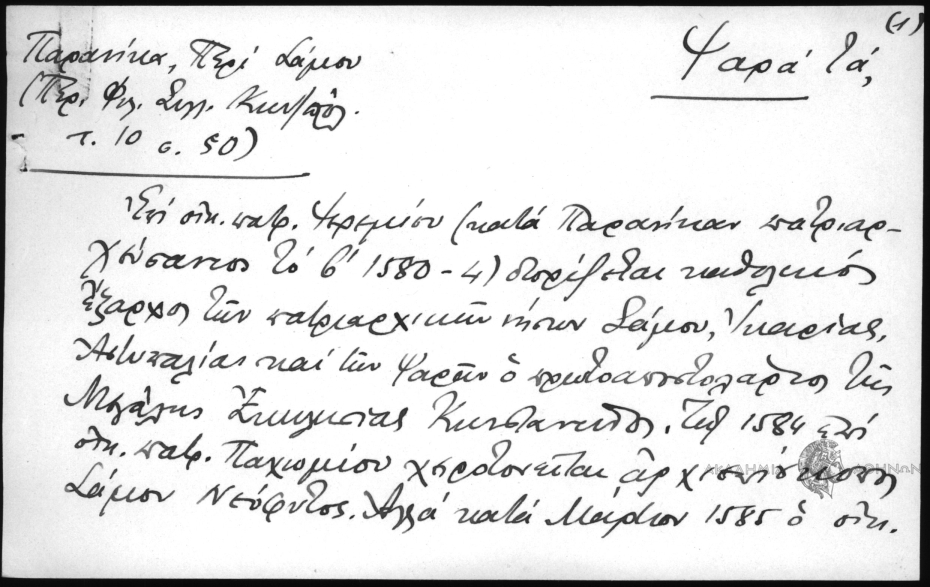 (1)
Ψαρά τά,
Παρανίκα, Περί Σάμου
(Περ. Φιλ. Συλλ. Κων/πόλ.
τ. 10 σ. 50)
Ἐπί οἰκ. πατρ. Ἰερεμίου (κατά Παρανίκαν πατριαρ-
χεύσαντος τό β' 1580-4) διορίζεται καθολικός
Ἔξαρχος τῶν πατριαρχικῶν νήσων Σάμου, Ἰκαρίας,
Ἀστυπαλίας καί τῶν Ψαρῶν ὁ πρωτοαποστολάριος τῆς
Μεγάλης Ἐκκλησίας Κωνσταντῖνος. Τῷ 1584 ἐπί
οἰκ. πατρ. Παχωμίου χειροτονεῖται ἀρχιεπίσκοπος
Σάμου Νεόφυτος. Ἀλλά κατά Μάρτιον 1585 ὁ οἰκ.
ΑΚΑΔΗΜΙΑ ΑΘΗΝΩΝ